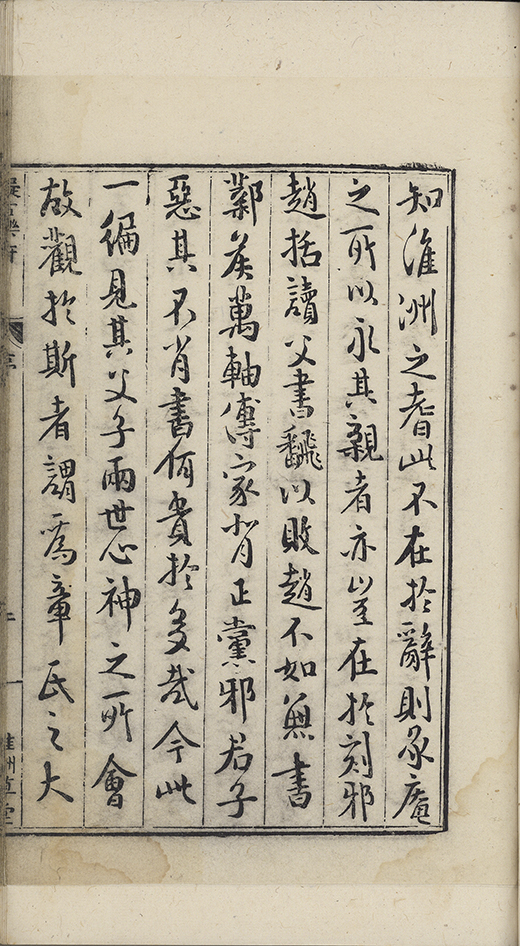 知淮洲之耆此不在於辭則庵
之所以永其親者亦豈在於刻邪
趙括讀父書飜以敗趙不如無書
鄴矦萬軸傳家背正黨邪君子
惡其不肖書何貴於多哉今此
一編見其父子兩世心神之所會
故觀於斯者謂爲章氏之大